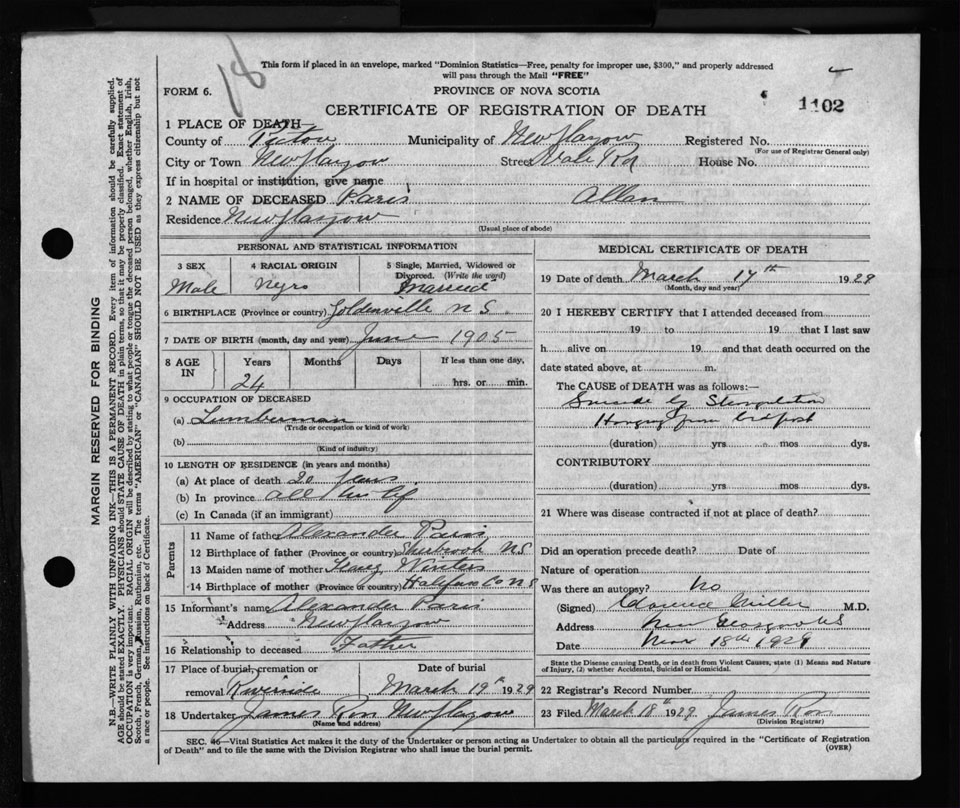 18
This form if placed in an envelope, marked "Dominion Statistics—Free, penalty for improper use, $300," and properly addressed
will pass through the Mail "FREE"
FORM 6.
PROVINCE OF NOVA SCOTIA
CERTIFICATE OF REGISTRATION OF DEATH
1102
1 PLACE OF DEATH—
County of Pictou Municipality of New Glasgow Registered No.
(For use of Registrar General only)
City or Town New Glasgow Street Vale Rd House No.
If in hospital or institution, give name
2 NAME OF DECEASED Paris Allan
Residence New Glasgow
(Usual place of abode)
PERSONAL AND STATISTICAL INFORMATION
3 SEX 4 RACIAL ORIGIN 5 Single, Married, Widowed or
Divorced. (Write the word)
Male Negro Married
6 BIRTHPLACE (Province or country) Goldenville N S
7 DATE OF BIRTH (month, day and year) June 1905
8 AGE IN Years Months Days If less than one day,
24 hrs. or min.
9 OCCUPATION OF DECEASED
(a) Lumberman
(Trade or occupation or kind of work)
(b)
(Kind of industry)
10 LENGTH OF RESIDENCE (in years and months)
(a) At place of death 20 years
(b) In province all his life
(c) In Canada (if an immigrant)
Parents
11 Name of father Alexander Paris
12 Birthplace of father (Province or country) Sherbrook N S
13 Maiden name of mother Winters
14 Birthplace of mother (Province or country) Halifax Co N S
15 Informant's name Alexander Paris
Address New Glasgow
16 Relationship to deceased Father
17 Place of burial, cremation or Date of burial
removal Riverside March 19th 1929
18 Undertaker James Ross New Glasgow
(Name and address)
MEDICAL CERTIFICATE OF DEATH
19 Date of death March 17th 1929
(Month, day and year)
20 I HEREBY CERTIFY that I attended deceased from
19 to 19 that I last saw
h alive on 19 and that death occurred on the
date stated above, at m.
The CAUSE OF DEATH was as follows:—
Suicide by Strangulation
Hanging from bedpost
(duration) yrs mos dys.
CONTRIBUTORY
(duration) yrs mos dys.
21 Where was disease contracted if not at place of death?
Did an operation precede death? Date of
Nature of operation
Was there an autopsy? No
(Signed) Clarence Miller M.D.
Address New Glasgow NS
Date Mar 18th 1929
State the Disease causing Death, or in death from Violent Causes, state (1) Means and Nature
of Injury, (2) whether Accidental, Suicidal or Homicidal.
22 Registrar's Record Number
23 Filed March 18th 1929 James Ross
(Division Registrar)
SEC. 46—Vital Statistics Act makes it the duty of the Undertaker or person acting as Undertaker to obtain all the particulars required in the "Certificate of Registration
of Death" and to file the same with the Division Registrar who shall issue the burial permit.
(OVER)
MARGIN RESERVED FOR BINDING
N.B.—WRITE PLAINLY WITH UNFADING INK—THIS IS A PERMANENT RECORD. Every item of information should be carefully supplied.
AGE should be stated EXACTLY. PHYSICIANS should STATE CAUSE OF DEATH in plain terms, so that it may be properly classified. Exact statement of
OCCUPATION is very important. RACIAL ORIGIN will be described by stating to what people or tongue the deceased person belonged, whether English, Irish,
Scotch, French, German, Russian, Ruthenian, etc. The terms "AMERICAN" or "CANADIAN" SHOULD NOT BE USED as they express citizenship but not
a race or people. See instructions on back of Certificate.